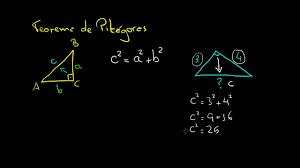 Teorema de Pitágoras
B
c a
A b C
c² = a² + b²
3 4
?
c
c² = 3² + 4²
c² = 9 + 16
c² = 25